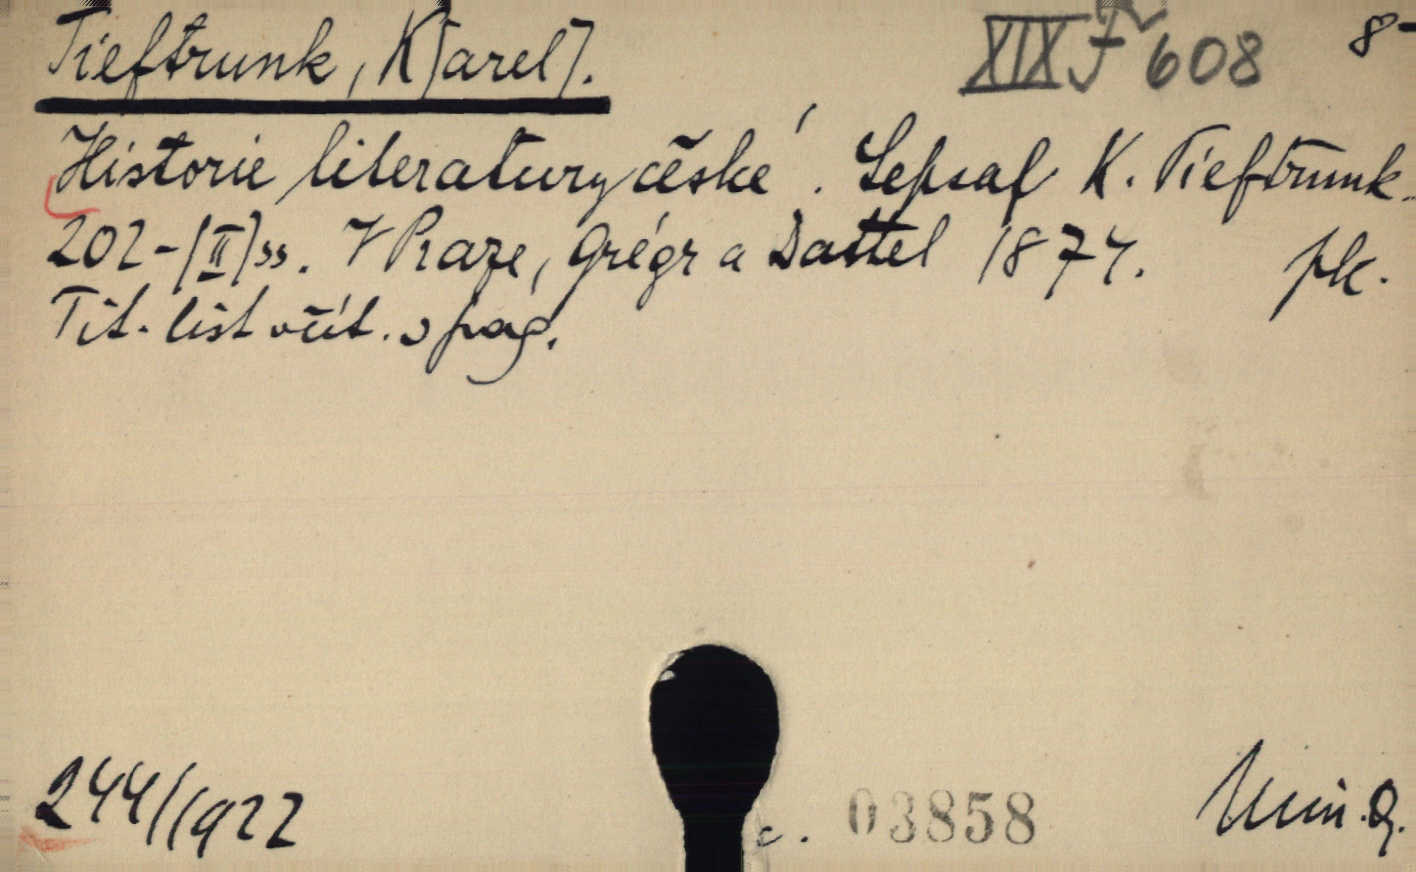 Tieftrunk, K[arel]. XIX F 608 8-
Historie literatury české. Sepsal K. Tieftrunk.
202-[II] ss. V Praze, Grégr a Dattel 1874. pk.
Tit. list včít. v pag.
244/1922 c. 03858